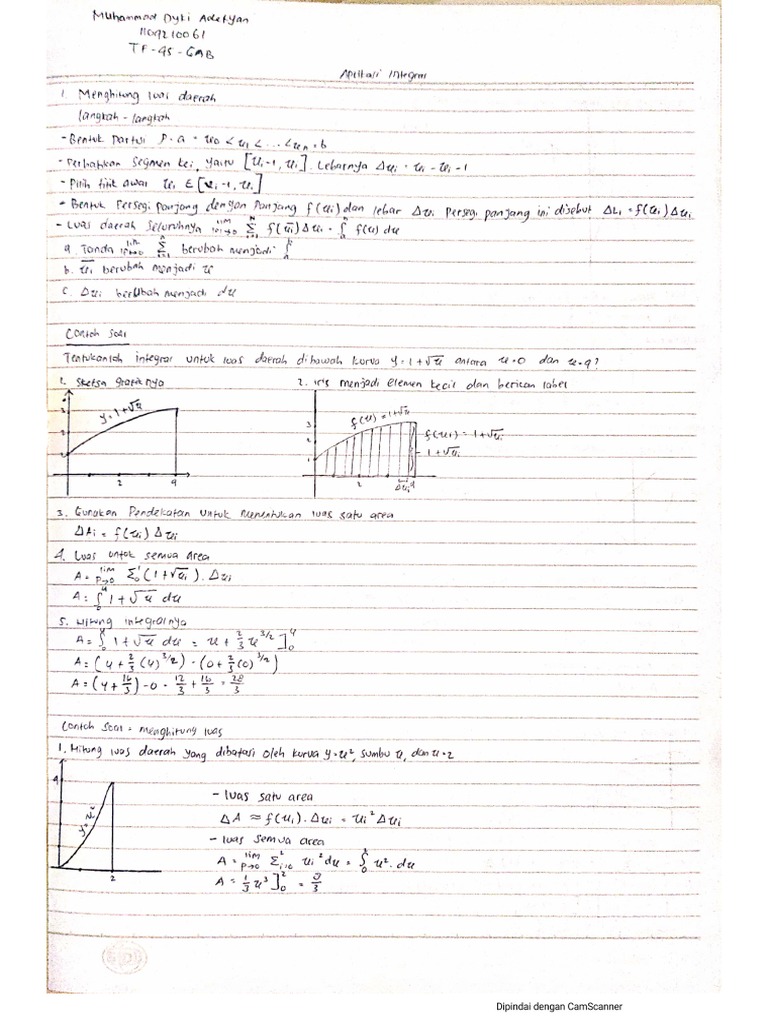 Muhammad Dyki Adefyan
1109210061
TF-45-GAB
Aplikasi Integral
1. Menghitung luas daerah
langkah - langkah
- Bentuk partisi P. a = u0 < u1 < ... < un = b
- Perhatikan segmen kei, yaitu [ui-1, ui]. Lebarnya Δui = ui - ui-1
- Pilih titik awal ui ∈ [ui-1, ui]
- Bentuk Persegi panjang dengan panjang f(ui) dan lebar Δui Persegi panjang ini disebut ΔLi = f(ui) Δui
- Luas daerah seluruhnya lim |P|→0 Σ f(ui) Δui = ∫ f(u) du
a. Tanda lim |P|→0 Σ berubah menjadi ∫
b. ui berubah menjadi u
c. Δui berubah menjadi du
Contoh soal
Tentukanlah integral untuk luas daerah dibawah kurva y = 1 + √u antara u=0 dan u=4?
1. Sketsa grafiknya
2. iris menjadi elemen kecil dan berikan label
y = 1+√u
f(u) = 1+√u
f(ui) = 1+√ui
1+√ui
3
2
1
2 4
3
2
1
2 4
Δui
3. Gunakan Pendekatan untuk menentukan luas satu area
ΔAi = f(ui) Δui
4. Luas untuk semua area
A = lim P→0 Σ (1+√ui) . Δui
A = ∫₀⁴ 1 + √u du
5. Hitung integralnya
A = ∫₀⁴ 1 + √u du = u + 2/3 u^3/2 ]₀⁴
A = (4 + 2/3 (4)^3/2) - (0 + 2/3 (0)^3/2)
A = (4 + 16/3) - 0 = 12/3 + 16/3 = 28/3
Contoh soal = menghitung luas
1. Hitung luas daerah yang dibatasi oleh kurva y=u², sumbu u, dan u=2
4
y=u²
2
- luas satu area
ΔA ≈ f(ui) . Δui = ui² Δui
- luas semua area
A = lim P→0 Σ ui² du = ∫₀² u² . du
A = 1/3 u³ ]₀² = 8/3
Dipindai dengan CamScanner